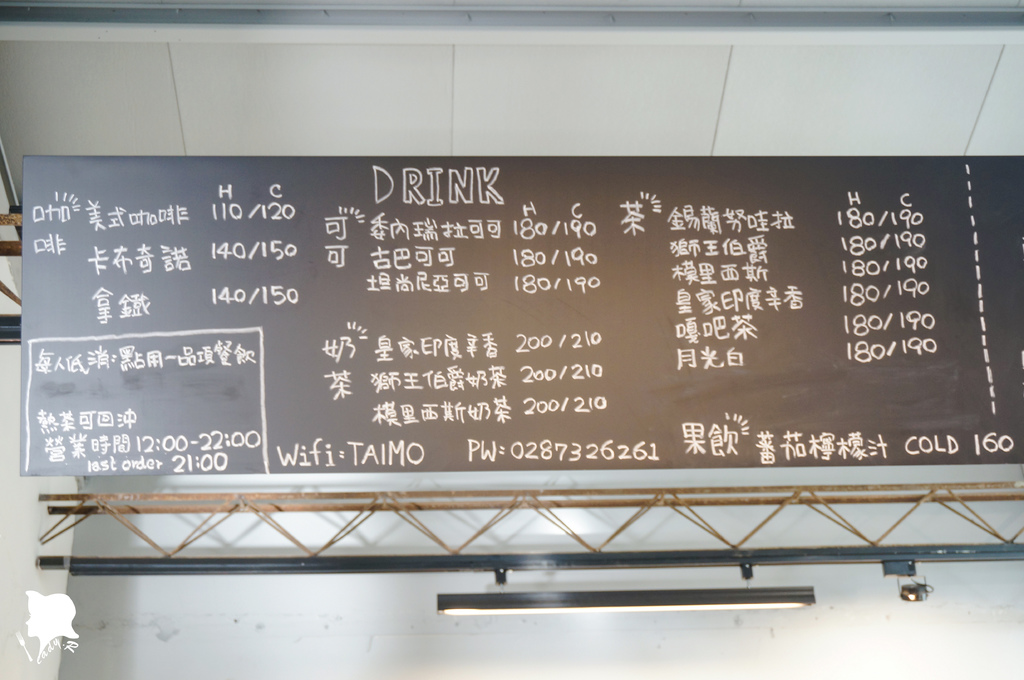 DRINK
咖啡
H C
美式咖啡 110/120
卡布奇諾 140/150
拿鐵 140/150
每人低消:點占用一品項餐飲
熱茶可回沖
營業時間12:00-22:00
last order 21:00
可可
H C
委內瑞拉可可 180/190
古巴可可 180/190
坦尚尼亞可可 180/190
奶茶
皇家印度辛香 200/210
獅王伯爵奶茶 200/210
模里西斯奶茶 200/210
Wifi:TAIMO PW:0287326261
茶
H C
錫蘭努哇拉 180/190
獅王伯爵 180/190
模里西斯 180/190
皇家印度辛香 180/190
嘎吧茶 180/190
月光白 180/190
果飲 蕃茄檸檬汁 COLD 160
Lady.R